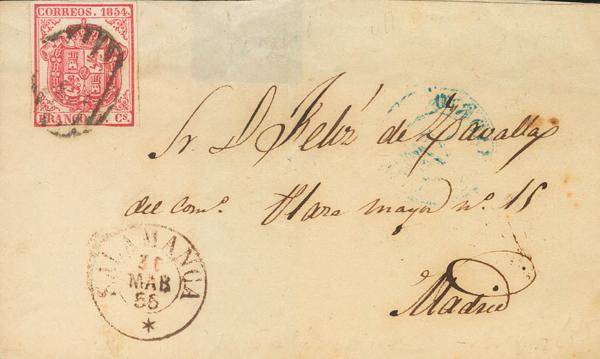 CORREOS. 1854.
FRANCO Cs.
Sr. D. Feliz de Zavalla
del com.º Plaza mayor nº. 15
Madrid
SALAMANCA
31
MAR
55